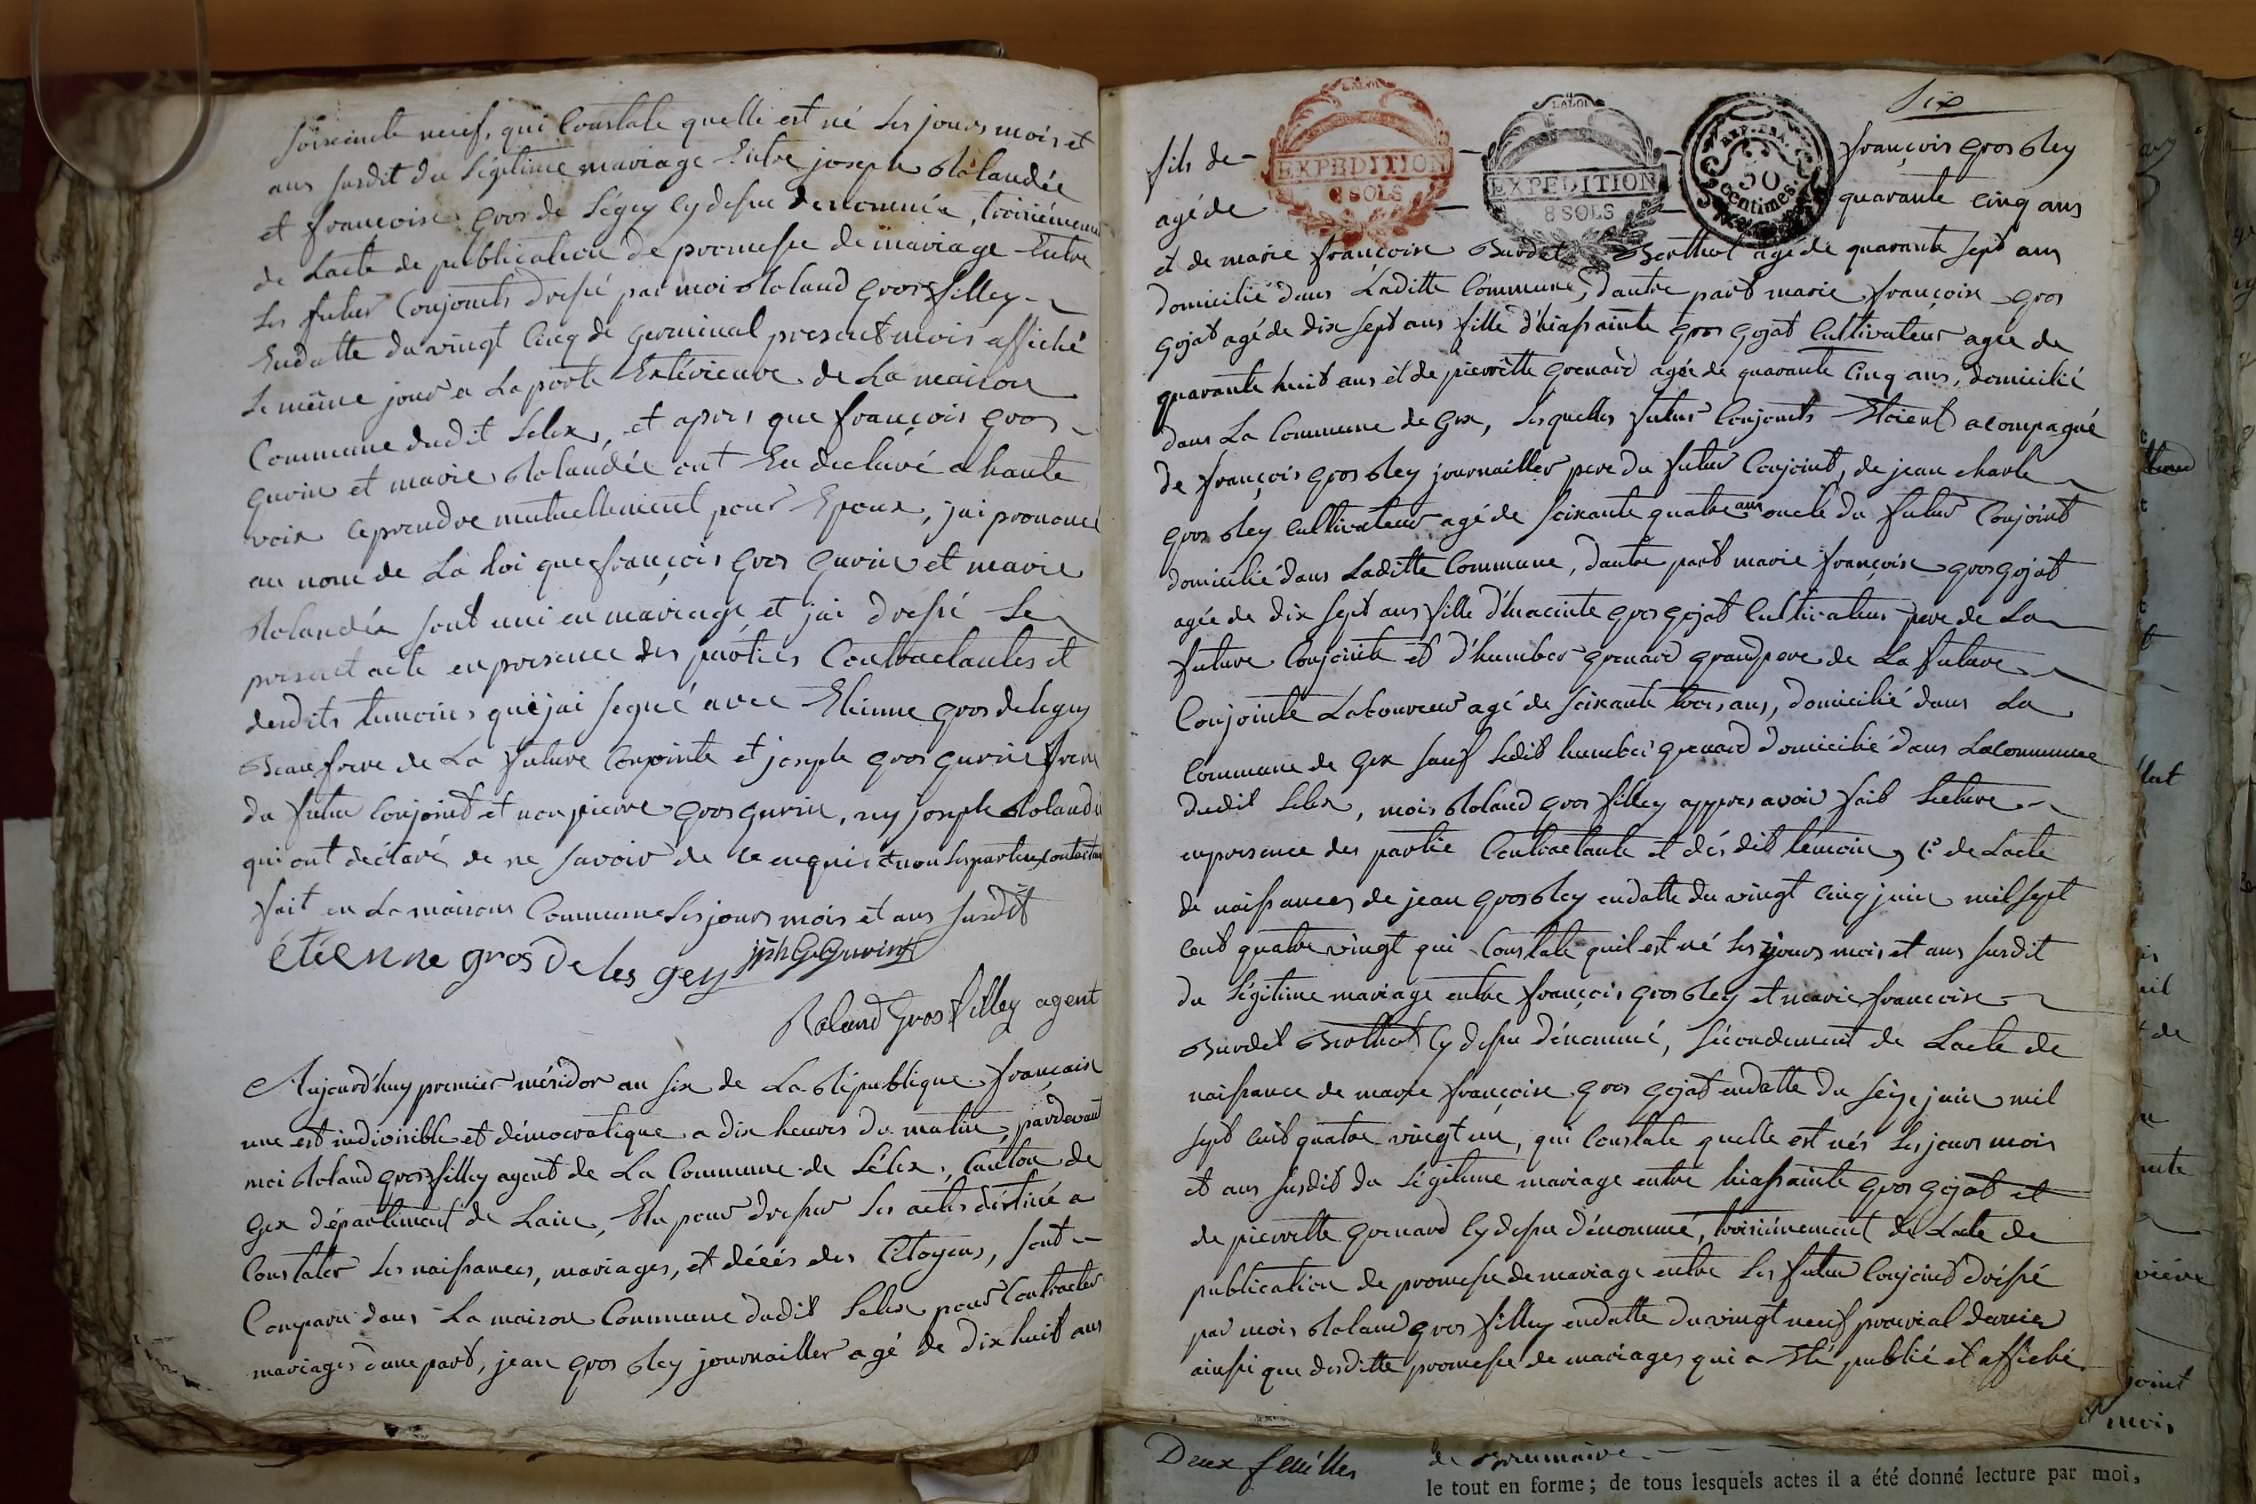 soixante neuf, qui Constate quelle est né les jours mois et
ans susdit du Légitime mariage Entre joseph Rolandée
et françoise gros de Légey Cy dessu denommée, troisiémement
de Lacte de publication de promesse de mariage Entre
les futur Conjoints dressé par moi Roland gros filley
Endatte du vingt Cinq de germinal present mois affiché
le même jour a La porte Extérieure de La maison
Commune dudit Lélex, et apres que françois gros
gurin et marie Rolandée ont Eu declaré a haute
voix ce prendre mutuellement pour Epoux, jai prononcé
au nom de La Loi que françois gros gurin et marie
Rolandée sont uni en mariage, et jai dressé Le
present acte en presence des parties Contractantes et
desdits temoins qui jai segné avec Etienne gros de legey
Beau frere de La future Conjointe et joseph gros gurin frere
du futur Conjoint et non pierre gros gurin, ny joseph Rolandée
qui ont déclaré de ne savoir de ce enquis et non les parties Contractantes
fait en La maison Commune les jours mois et ans susdit
étienne gros De les gey jph G Gurin
Roland Gros filley agent
Aujourd'huy premier méssidor an six de La République française
une est indivisible et démocratique a dix heures du matin, pardevant
moi Roland gros filley agent de La Commune de Lélex, Canton de
Gex département de Lain, Elu pour dresser les actes déstiné a
Constater les naissances, mariages, et décés des Citoyens, sont
Comparu dans La maison Commune dudit Lelex pour Contracter
mariages dune part, jean gros Bley journailler agé de dix huit ans
Six
fils de EXPEDITION 8 SOLS EXPEDITION 8 SOLS 50 centimes françois gros Bley
agé de quarante Cinq ans
LA LOI
LA LOI
REP. FRA.
et de marie françoise Burdet Berthot agé de quarante sept ans
domicilié dans Laditte Commune, dautre part marie françoise gros
gojat agé de dix sept ans fille d'hiassainte gros gojat Cultivateur agée de
quarante huit ans et de pierrette grenard agée de quarante Cinq ans, domicilié
dans La Commune de Gex, lesquelles futur Conjoints Etoient acompagné
de françois gros Bley journailler pere du futur Conjoint, de jean charle
gros Bley Cultivateur agé de soixante quatre ans oncle du futur Conjoint
domicilié dans Laditte Commune, dautre part marie françoise gros gojat
agée de dix sept ans fille d'hiacinte gros gojat Cultivateur pere de La
future Conjointe et d'humber grenard grand pere de La future
Conjointe Laboureur agé de soixante trois ans, domicilié dans La
Commune de Gex sauf ledit humber grenard domicilié dans La Commune
dudit Lelex, mois Roland gros filley appres avoir fait Lecture
enpresence des partie Contractante et des dit temoins, 1º de Lacte
de naissances de jean gros bley endatte du vingt cinq juin mil sept
cent quatre vingt qui Constate quil est né les jours mois et ans susdit
du Légitime mariage entre françois gros bley et marie francoise
Burdet Berthot Cy dessu dénommé, sécondement de Lacte de
naissance de marie françoise gros gojat endatte du seize juin mil
sept cent quatre vingt un, qui Constate quelle est nés les jours mois
et ans susdit du Légitime mariage entre hiassainte gros gojat et
de pierrette grenard Cy dessu dénommé, troisiémement de Lacte de
publication de promesse de mariage entre les futur Conjoint dréssé
par mois Roland gros filley endatte du vingt neuf prairial dernier
ainssi que desditte promesse de mariages qui a Eté publié et affiché
joint
mois
Deux feuilles
de Brumaire
le tout en forme ; de tous lesquels actes il a été donné lecture par moi,